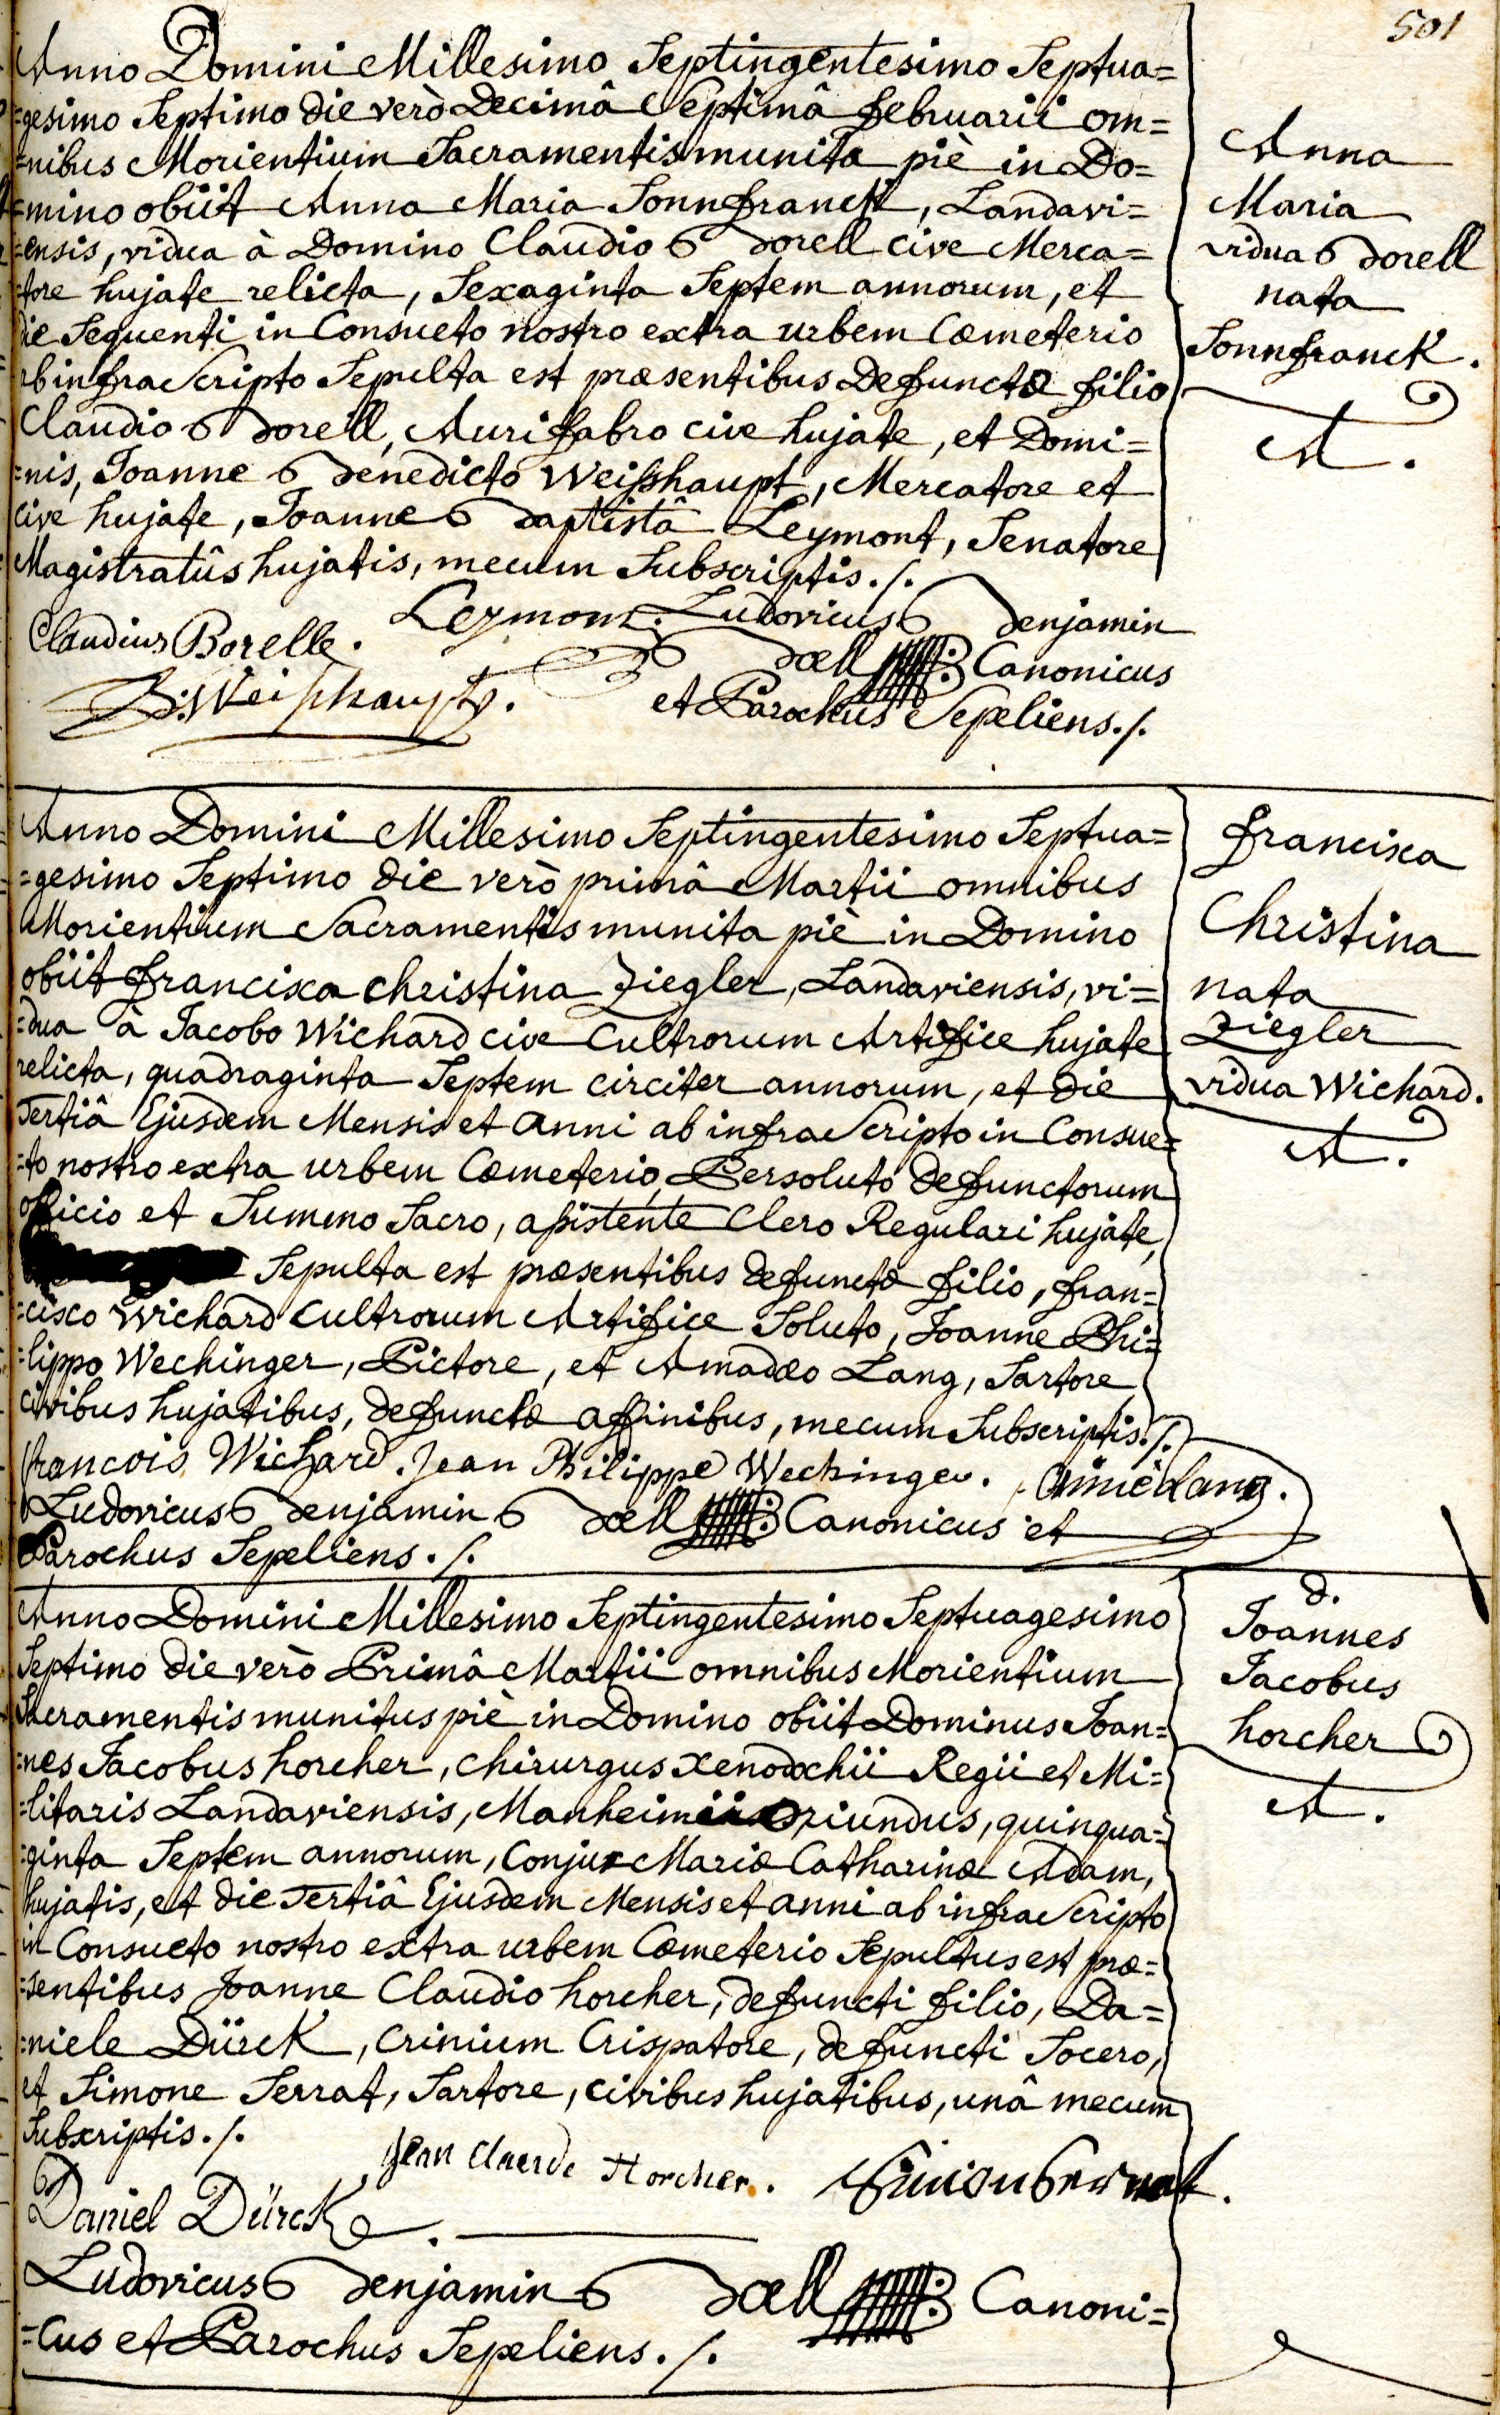 501
Anno Domini Millesimo Septingentesimo Septua=
=gesimo Septimo die verò Decimâ Septimâ februarii om=
=nibus Morientium Sacramentis munita piè in Do=
=mino obiit Anna Maria Sonnfranck, Landavi=
=ensis, vidua à Domino Claudio Borell cive Merca=
=tore hujate relicta, Sexaginta Septem annorum, et
die Sequenti in Consueto nostro extra urbem Cœmeterio
ab infra Scripto Sepulta est præsentibus Defunctæ filio
Claudio Borell, Aurifabro cive hujate, et Domi=
=nis, Joanne Benedicto Weisshaupt, Mercatore et
cive hujate, Joanne Baptistâ Leymont, Senatore
Magistratûs hujatis, mecum Subscriptis ./.
Claudius Borelle. Leymont. Ludovicus Benjamin
Bœll Canonicus
B: Weisshaupt. et Parochus Sepeliens ./.
Anna
Maria
vidua Borell
nata
Sonnfranck.
A.
Anno Domini Millesimo Septingentesimo Septua=
=gesimo Septimo die verò primâ Martii omnibus
Morientium Sacramentis munita piè in Domino
obiit francisca Christina Ziegler, Landaviensis, vi=
=dua à Jacobo Wichard cive Cultrorum Artifice hujate
relicta, quadraginta Septem circiter annorum, et die
Tertiâ Ejusdem Mensis et anni ab infra Scripto in Consue=
=to nostro extra urbem Cœmeterio, Persoluto defunctorum
officio et Summo Sacro, assistente Clero Regulari hujate,
Sepulta est præsentibus defunctæ filio, fran=
=cisco Wichard Cultrorum Artifice Soluto, Joanne Phi=
=lippo Wechinger, Pictore, et Amadæo Lang, Sartore
civibus hujatibus, defunctæ affinibus, mecum Subscriptis ./.
francois Wichard. Jean Philippe Wechinger. Amié Lang.
Ludovicus Benjamin Bœll Canonicus et
Parochus Sepeliens ./.
francisca
Christina
nata
Ziegler
vidua Wichard.
A.
Anno Domini Millesimo Septingentesimo Septuagesimo
Septimo die verò Primâ Martii omnibus Morientium
Sacramentis munitus piè in Domino obiit Dominus Joan=
=nes Jacobus horcher, Chirurgus Xenodochii Regii et Mi=
=litaris Landaviensis, Manheimii oriundus, quinqua=
=ginta Septem annorum, Conjux Mariæ Catharinæ Adam,
hujatis, et die Tertiâ Ejusdem Mensis et anni ab infra Scripto
in Consueto nostro extra urbem Cœmeterio Sepultus est præ=
=sentibus Joanne Claudio horcher, defuncti filio, Da=
=niele Dürck, Crinium Crispatore, defuncti Socero,
et Simone Serrat, Sartore, civibus hujatibus, unâ mecum
Subscriptis ./.
Jean Claude Horcher. Simon Serrat.
Daniel Dürck.
Ludovicus Benjamin Bœll Canoni=
=cus et Parochus Sepeliens ./.
d.
Joannes
Jacobus
horcher
A.